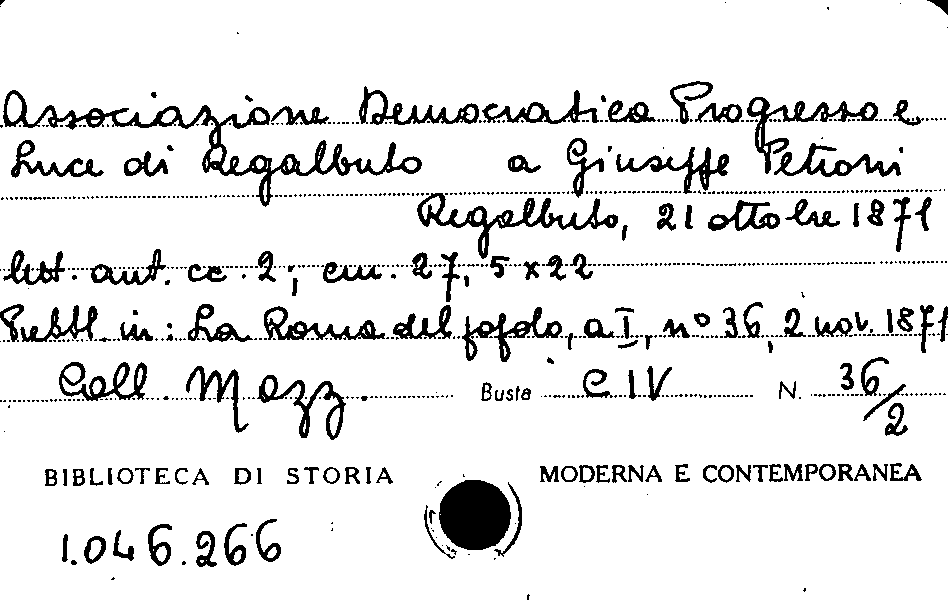 Associazione Democratica Progresso e
Luce di Regalbuto a Giuseppe Petroni
Regalbuto, 21 ottobre 1871
lett. aut. cc. 2; cm. 27,5 x 22
Pubbl. in: La Roma del popolo, a I, n° 36, 2 nov. 1871
Coll. Mazz. Busta C IV N. 36/2
BIBLIOTECA DI STORIA MODERNA E CONTEMPORANEA
1.046.266